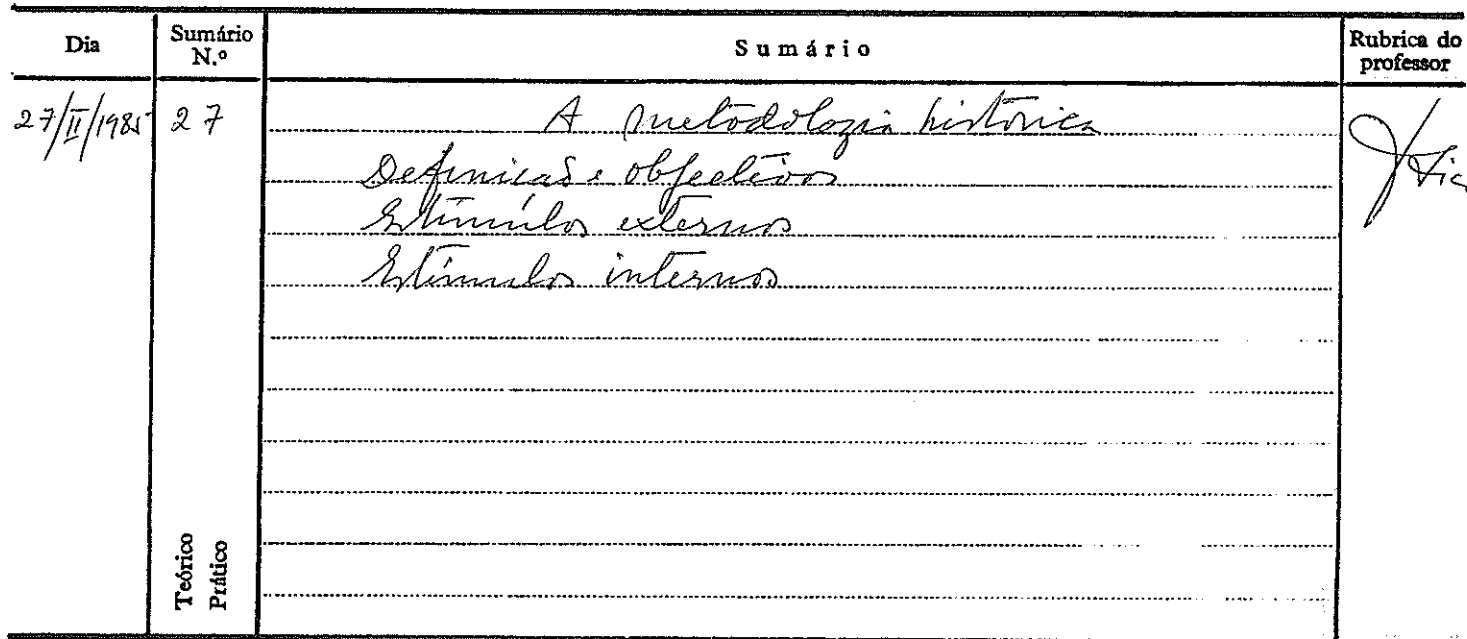 Dia
Sumário N.º
Sumário
Rubrica do professor
27/II/1985
27
A metodologia histórica
Definição e objectivos
Estímulos externos
Estímulos internos
Teórico
Prático